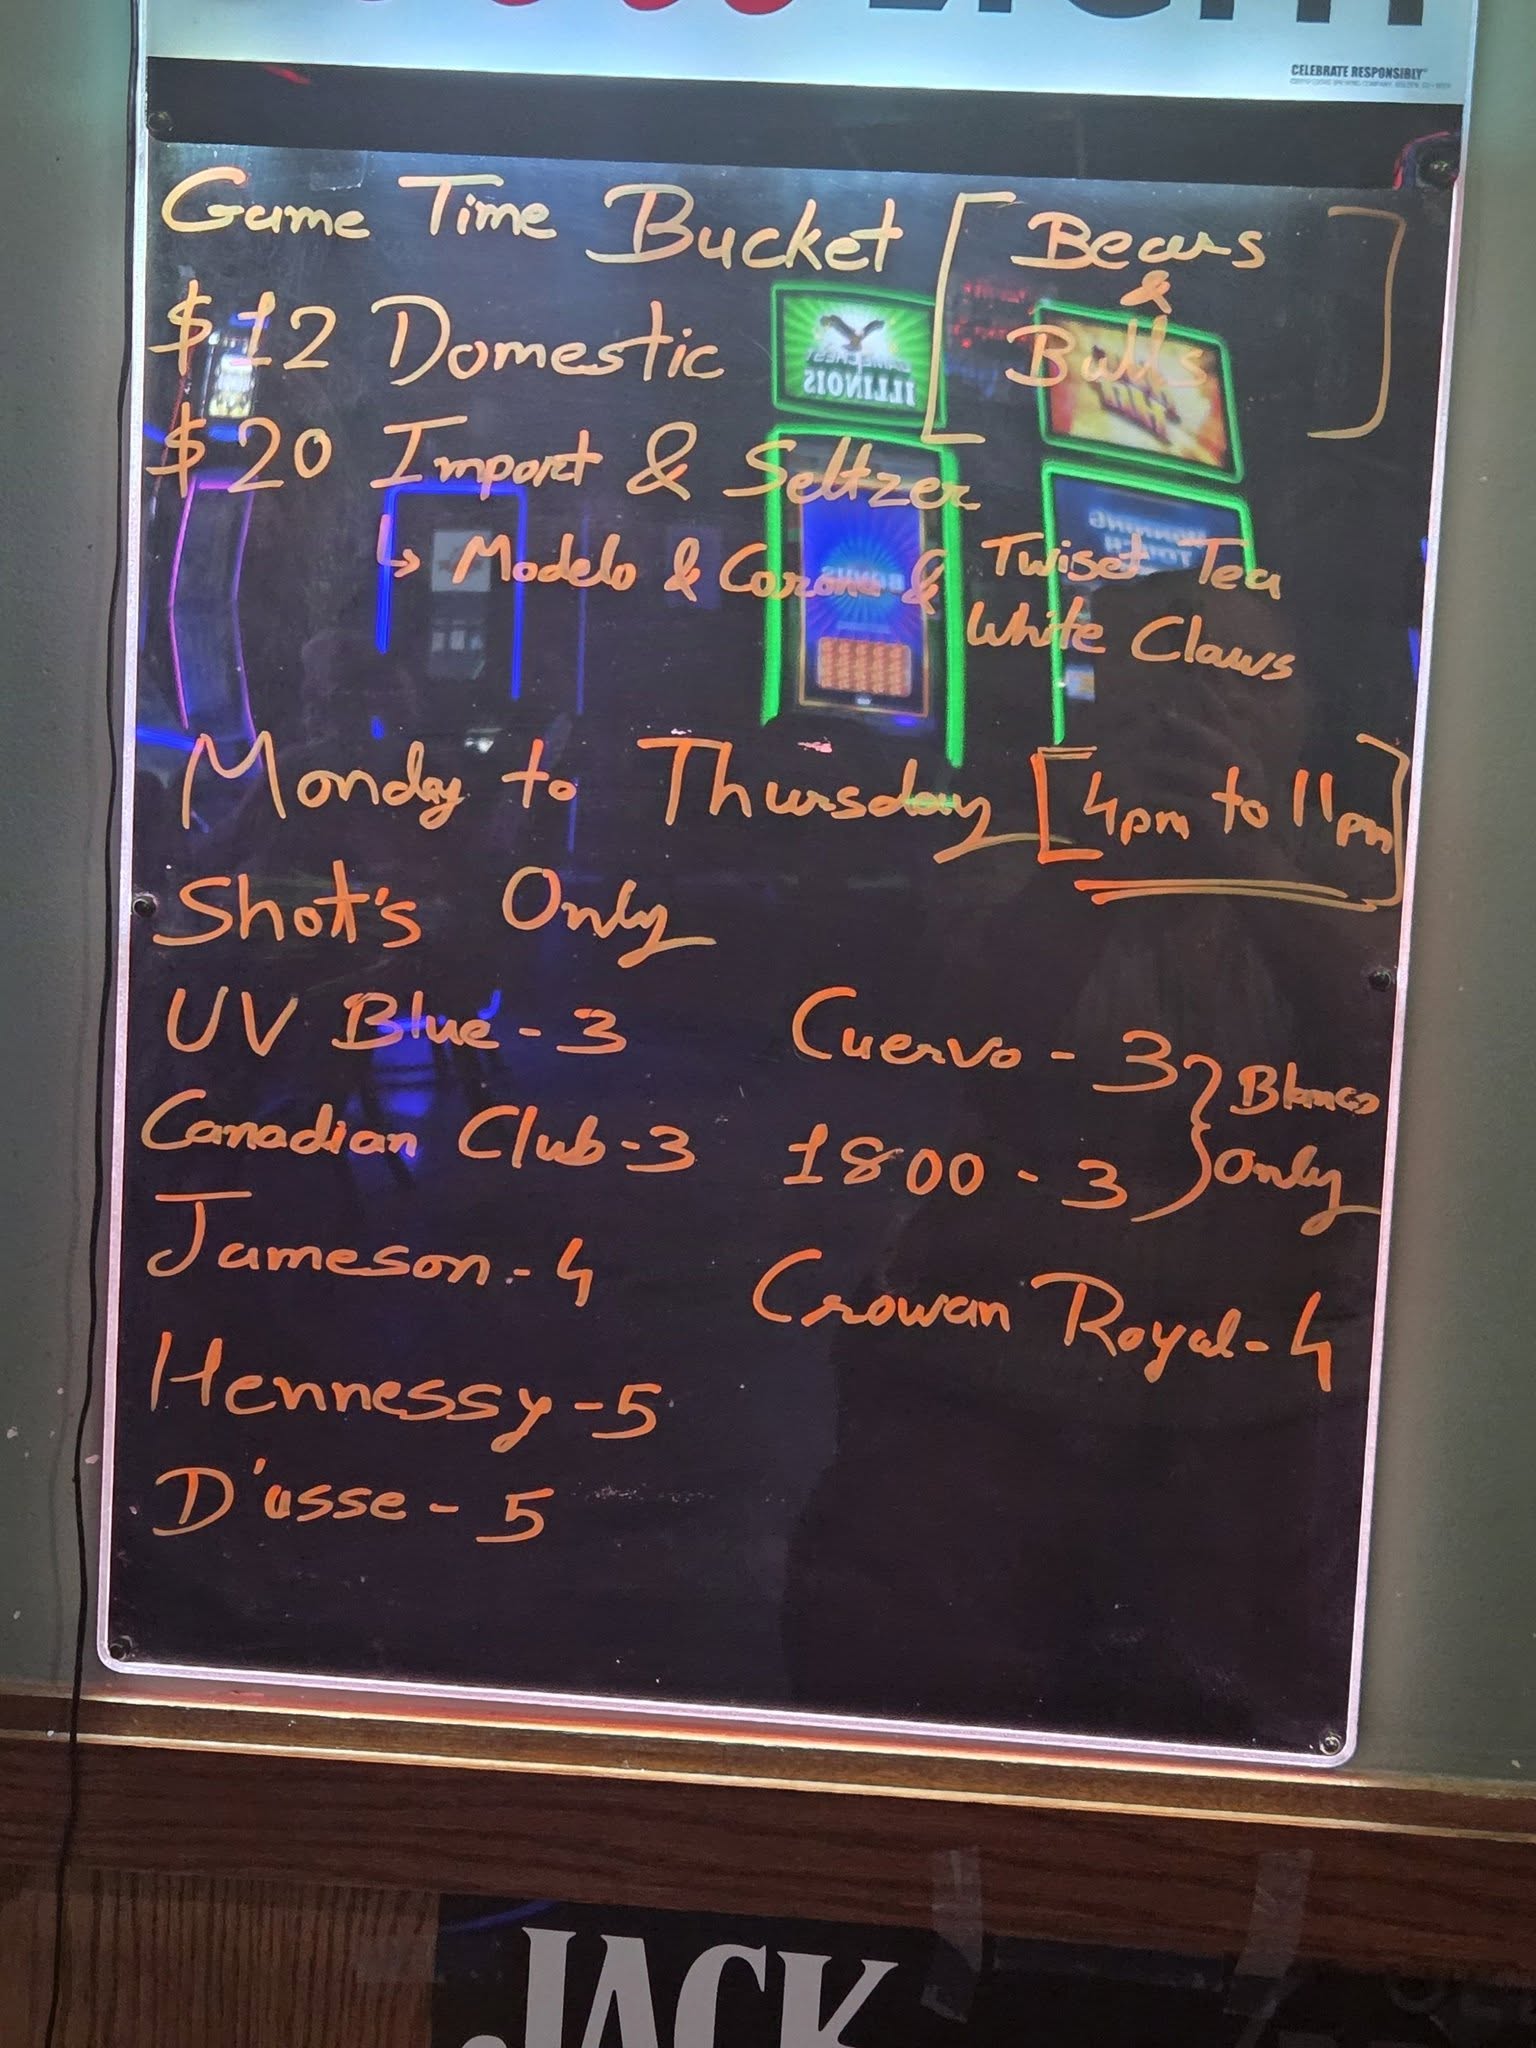 CELEBRATE RESPONSIBLY
Game Time Bucket [Bears & Bulls]
$12 Domestic
$20 Import & Seltzer
↳ Modelo & Corona & Twiset Tea
White Claws
Monday to Thursday [4pm to 11pm]
Shot's Only
UV Blue - 3
Cuervo - 3 } Blanco Only
Canadian Club - 3
1800 - 3
Jameson - 4
Crowan Royal - 4
Hennessy - 5
D'usse - 5
ILLINOIS
BONUS
JACK